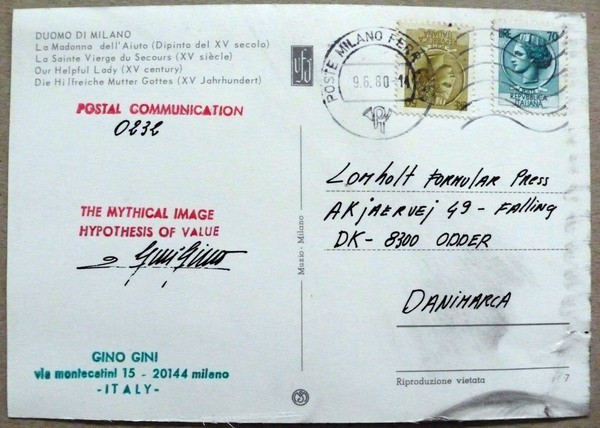 DUOMO DI MILANO
La Madonna dell'Aiuto (Dipinta del XV secolo)
La Sainte Vierge du Secours (XV siècle)
Our Helpful Lady (XV century)
Die Hilfreiche Mutter Gottes (XV Jahrhundert)
POSTAL COMMUNICATION
0232
THE MYTHICAL IMAGE
HYPOTHESIS OF VALUE
Gino Gini
GINO GINI
via montecatini 15 - 20144 milano
- ITALY -
Muzio - Milano
POSTE MILANO FERR
9.6.80-14
LIRE 70
REPUBBLICA
ITALIANA
Lomholt FORMULAR PRESS
AKjAERVEj 49 - FALLING
DK - 8300 ODDER
DANIMARCA
Riproduzione vietata